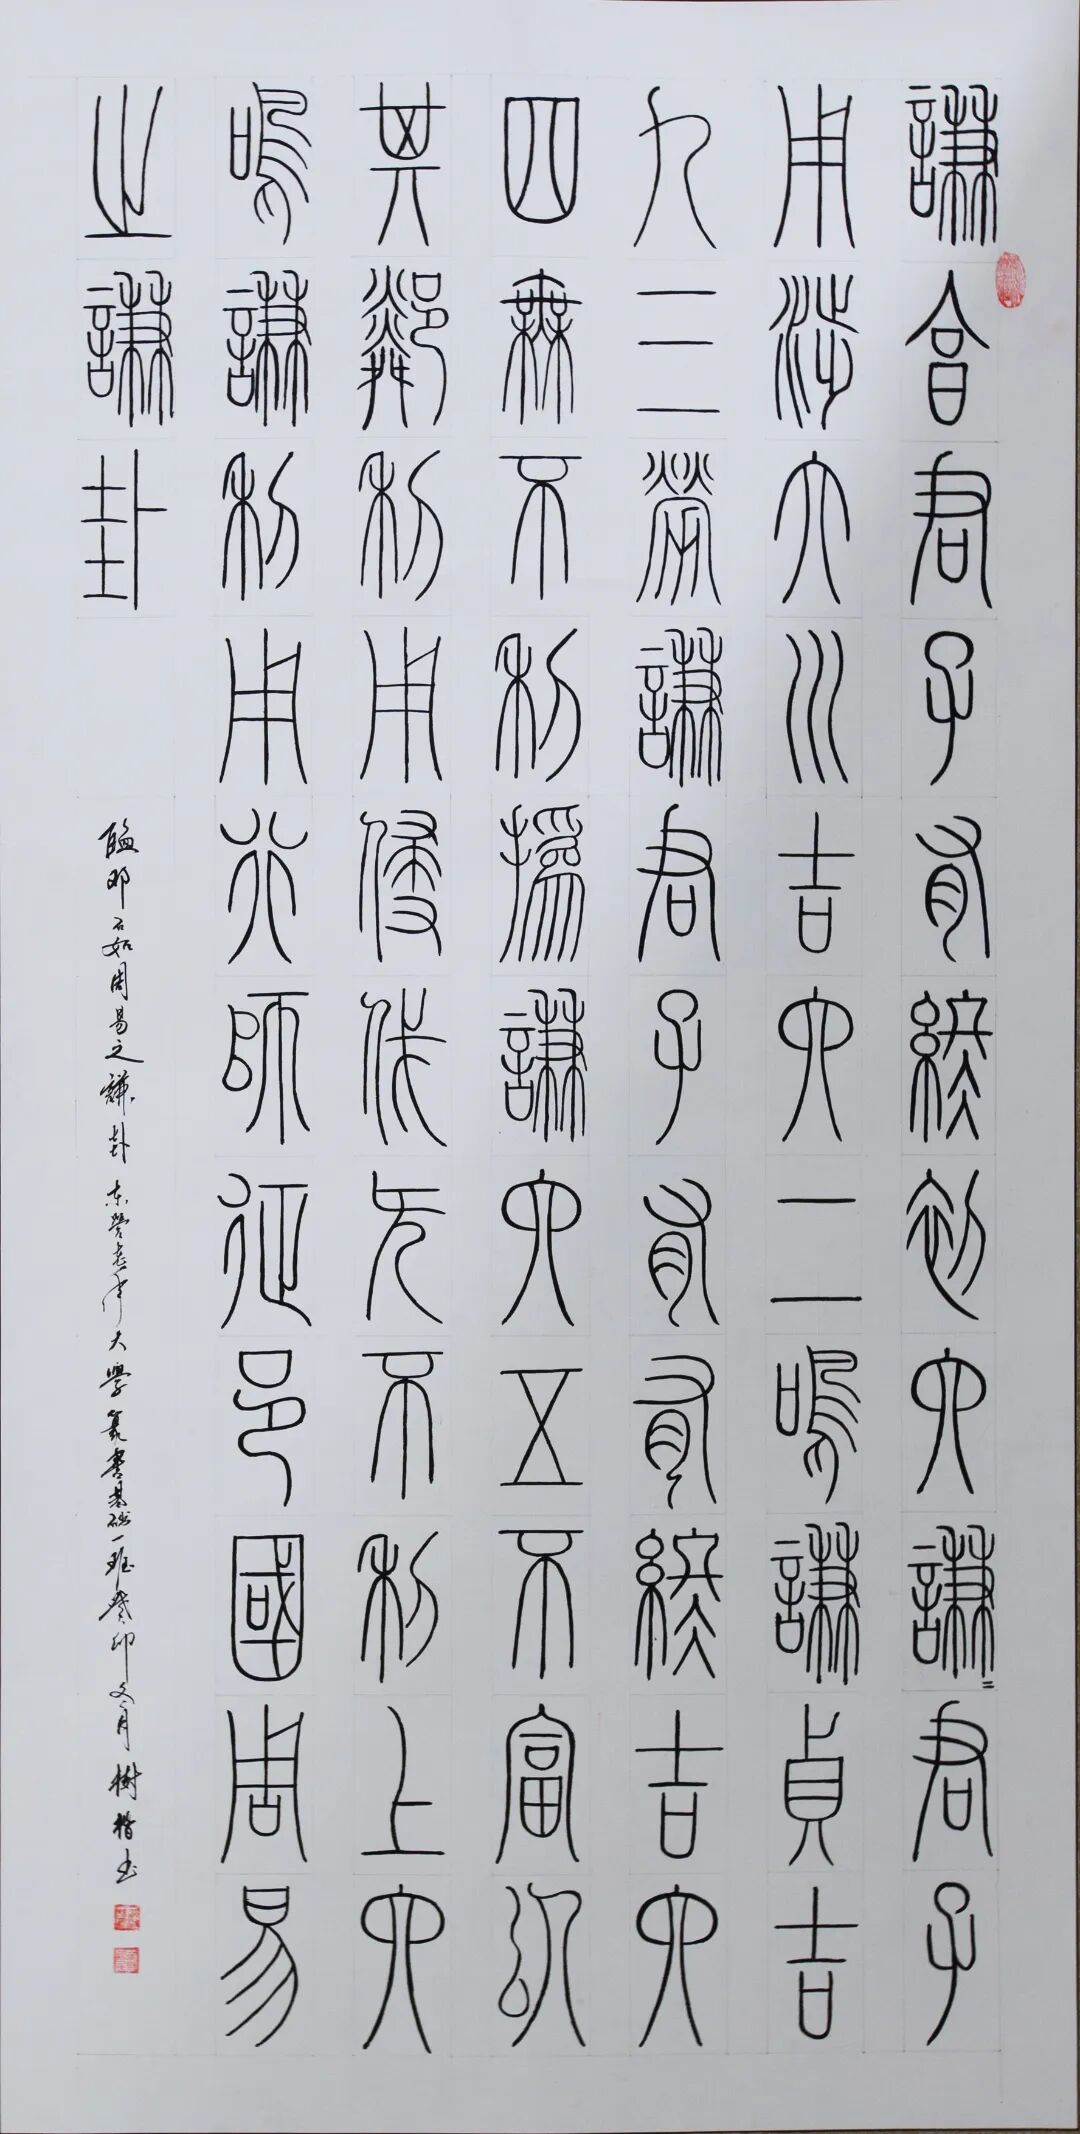 謙亨君子有終初六謙=君子
用涉大川吉六二鳴謙貞吉
九三勞謙君子有有終吉六
四無不利撝謙六五不富以
其鄰利用侵伐无不利上六
鳴謙利用行師征邑國周易
之謙卦
臨邓石如周易之謙卦 东營老年大學篆書基础一班癸卯文月樹楷书